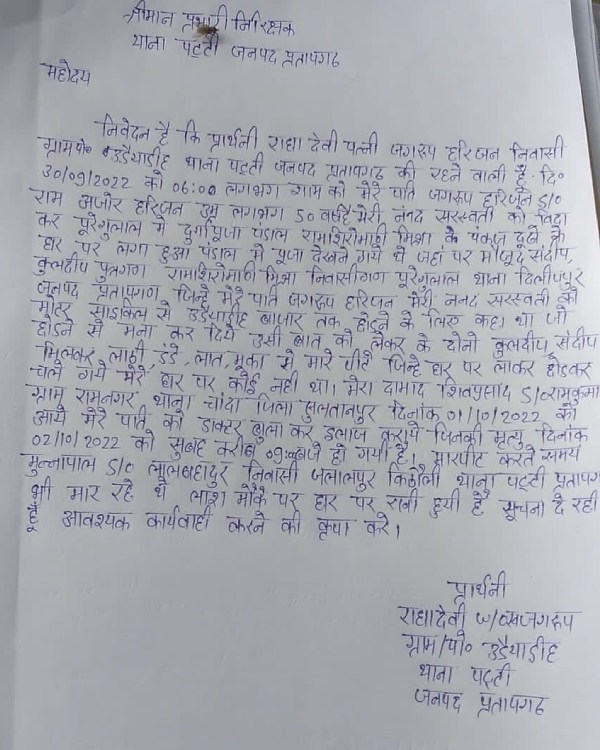 श्रीमान प्रभारी निरिक्षक
थाना पट्टी जनपद प्रतापगढ
महोदय
निवेदन है कि प्रार्थनी राधा देवी पत्नी जगरूप हरिजन निवासी
ग्राम पो० उडैयाडीह थाना पट्टी जनपद प्रतापगढ की रहने वाली है. दि०
30/09/2022 को 06:00 लगभग शाम को मेरे पति जगरूप हरिजन S/O
राम अजोर हरिजन उम्र लगभग 50 वर्ष मेरी ननद सरस्वती को विदा
कर पूरेगुलाल मे दुर्गापूजा पंडाल रामशिरोमणि मिश्रा के के
घर पर लगा हुआ पंडाल मे पूजा देखने गये थे जहां पर मौजूद संदीप,
कुलदीप पुत्रगण रामशिरोमणि मिश्रा निवासीगण पूरेगुलाल थाना दिलीपपुर
जनपद प्रतापगण जिन्हे मेरे पति जगरूप हरिजन मेरी ननद सरस्वती को
मोटर साइकिल से उडैयाडीह बाजार तक छोडने के लिए कहा था जो
छोडने से मना कर दिये उसी बात को लेकर के दोनो कुलदीप संदीप
मिलकर लाठी, डंडे, लात, मूका से मारे पीटे जिन्हे घर पर लाकर छोडकर
चले गये मेरे घर पर कोई नही था। मेरा दामाद शिवप्रसाद S/O रामकुमा
ग्राम रामनगर थाना चांदा जिला सुलतानपुर दिनांक 01/10/2022 को
आये मेरे पति को डाक्टर बुला कर इलाज कराये जिनकी मृत्यु दिनांक
02/10/2022 को सुबह करीब 09:00 बजे हो गयी है। मारपीट करते समय
मुन्नापाल S/O लालबहादुर निवासी जलालपुर किठौली थाना पट्टी प्रतापग
भी मार रहे थे लाश मौके पर घर पर रखी हुयी है सूचना दे रही
हूँ आवश्यक कार्यवाही करने की कृपा करे।
प्रार्थनी
राधादेवी W/O जगरूप
ग्राम/पो० उडैयाडीह
थाना पट्टी
जनपद प्रतापगढ